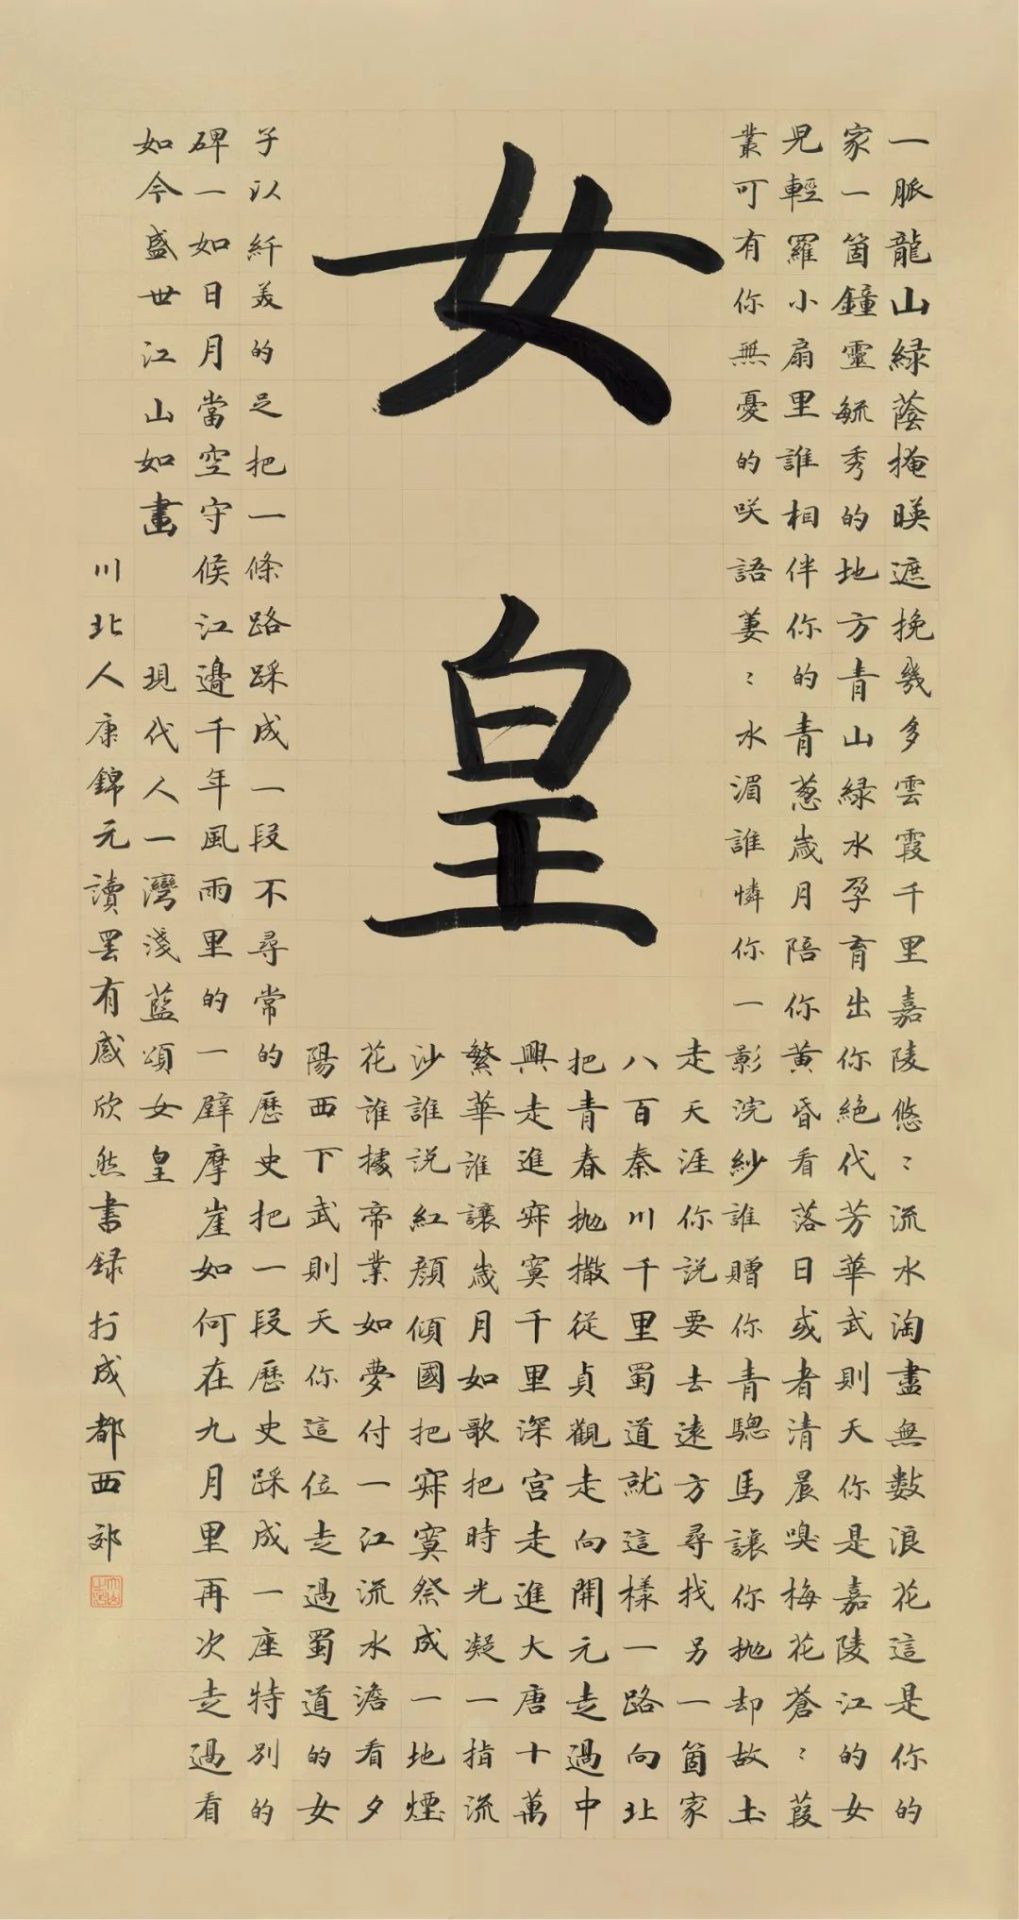 女皇
一脈龍山緑蔭掩暎遮挽幾多雲霞千里嘉陵悠〻流水淘盡無數浪花這是你的
家一箇鐘靈毓秀的地方青山緑水孕育出你絕代芳華武則天你是嘉陵江的女
兒輕羅小扇里誰相伴你的青蔥歲月陪你黃昏看落日或者清晨嗅梅花蒼〻葭
叢可有你無憂的咲語萋〻水湄誰憐你一影浣紗誰贈你青驄馬讓你拋却故土
走天涯你説要去遠方尋找另一箇家
八百秦川千里蜀道就這樣一路向北
把青春拋撒從貞觀走向開元走過中
興走進寂寞千里深宮走進大唐十萬
繁華誰讓歲月如歌把時光凝一指流
沙誰説紅顏傾國把寂寞祭成一地煙
花誰據帝業如夢付一江流水澹看夕
陽西下武則天你這位走過蜀道的女
子以纖美的足把一條路踩成一段不尋常的歷史把一段歷史踩成一座特別的
碑一如日月當空守候江邊千年風雨里的一壁摩崖如何在九月里再次走過看
如今盛世江山如畫 現代人一灣淺藍頌女皇
川北人康錦元讀罷有感欣然書録於成都西郊